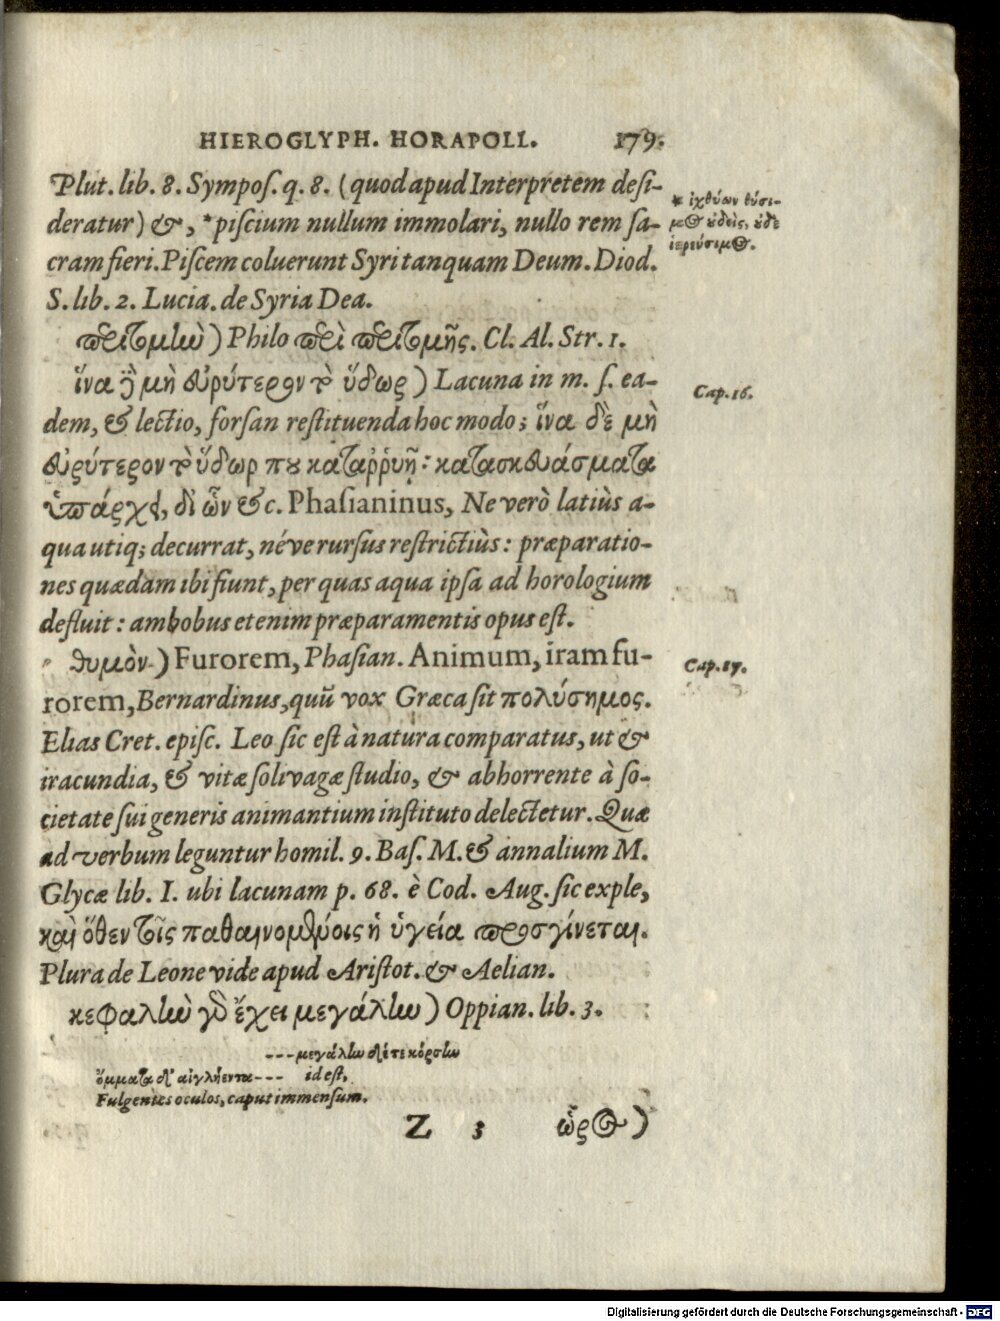 HIEROGLYPH. HORAPOLL. 179.
Plut. lib. 8. Sympoſ. q. 8. (quod apud Interpretem deſi-
deratur) &, *piſcium nullum immolari, nullo rem ſa-
cram fieri. Piſcem coluerunt Syri tanquam Deum. Diod.
S. lib. 2. Lucia. de Syria Dea.
* ἰχθύων θύσι-
μος οὐδεὶς, οὐδὲ
ἱερεύσιμος.
περιτομὴν) Philo περὶ περιτομῆς. Cl. Al. Str. 1.
ἵνα ἢ μὴ εὐρύτερον τὸ ὕδωρ) Lacuna in m. ſ. ea-
Cap. 16.
dem, & lectio, forſan reſtituenda hoc modo; ἵνα δὲ μὴ
εὐρύτερον τὸ ὕδωρ που καταῤῥυῇ: κατασκευάσματα
ὑπάρχει, δι' ὧν &c. Phaſianinus, Ne verò latiùs a-
qua utiq; decurrat, néve rurſus reſtrictiùs: præparatio-
nes quædam ibi fiunt, per quas aqua ipſa ad horologium
defluit: ambobus etenim præparamentis opus eſt.
" θυμὸν.) Furorem, Phaſian. Animum, iram fu-
Cap. 17.
rorem, Bernardinus, quũ vox Græca ſit πολύσημος.
Elias Cret. epiſc. Leo ſic eſt à natura comparatus, ut &
iracundia, & vitæ ſolivagæ ſtudio, & abhorrente à ſo-
cietate ſui generis animantium inſtituto delectetur. Quæ
ad verbum leguntur homil. 9. Baſ. M. & annalium M.
Glycæ lib. I. ubi lacunam p. 68. è Cod. Aug. ſic exple,
καὶ ὅθεν τοῖς παθαινομένοις ἡ ὑγεία προσγίνεται.
Plura de Leone vide apud Ariſtot. & Aelian.
κεφαλὴν γὸ ἔχει μεγάλην) Oppian. lib. 3.
---μεγάλην δέ τε κόρσην
ὄμματα δ' αἰγλήεντα--- id eſt,
Fulgentes oculos, caput immenſum.
Z 3 ὦρος)
Digitalisierung gefördert durch die Deutsche Forschungsgemeinschaft - DFG